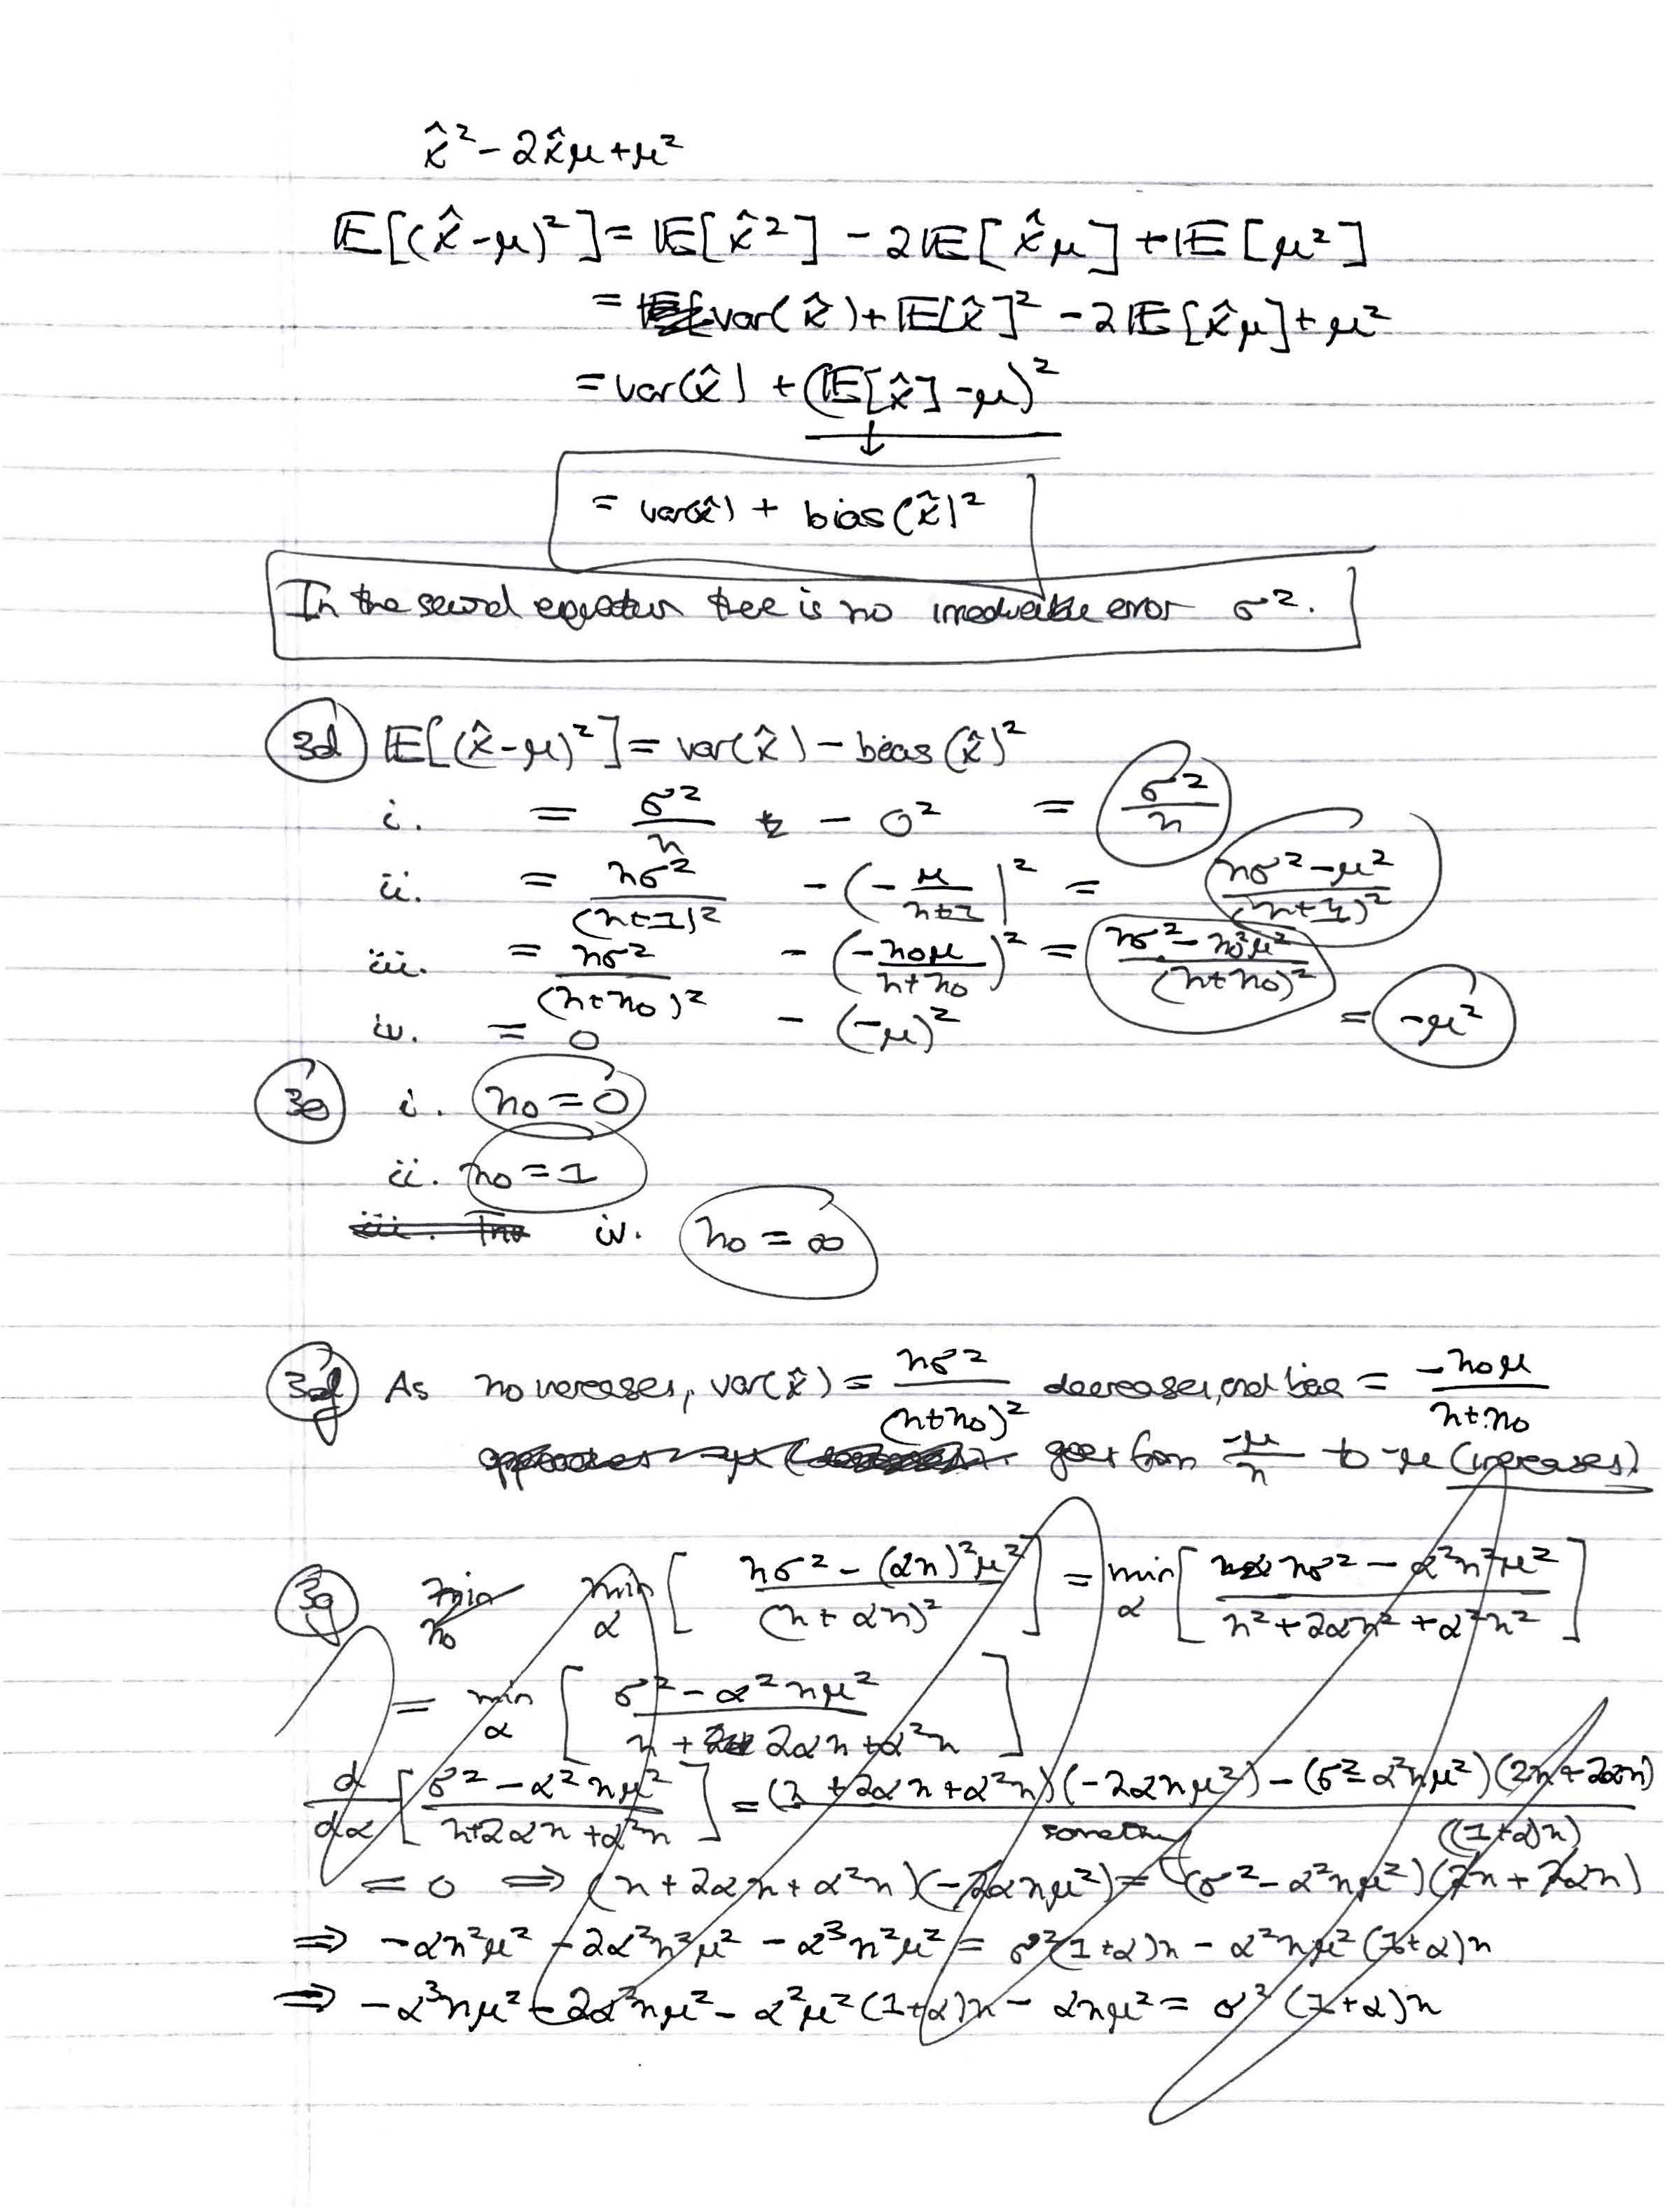 x̂² - 2x̂μ + μ²
𝔼[(x̂-μ)²] = 𝔼[x̂²] - 2𝔼[x̂μ] + 𝔼[μ²]
= var(x̂) + 𝔼[x̂]² - 2𝔼[x̂μ] + μ²
= var(x̂) + (𝔼[x̂] - μ)²
↓
= var(x̂) + bias(x̂)²
In the second equation there is no irreducible error σ².
3d 𝔼[(x̂-μ)²] = var(x̂) - bias(x̂)²
i. = σ²/n - 0² = σ²/n
ii. = nσ²/(n+1)² - (-μ/(n+1))² = (nσ²-μ²)/(n+1)²
iii. = nσ²/(n+n₀)² - (-n₀μ/(n+n₀))² = (nσ²-n₀²μ²)/(n+n₀)²
iv. = 0 - (-μ)² = -μ²
3e i. n₀ = 0
ii. n₀ = 1
iii. iv. n₀ = ∞
3f As n₀ increases, var(x̂) = nσ²/(n+n₀)² decreases, and bias = -n₀μ/(n+n₀)
goes from -μ/n to -μ (increases).
3g min n₀ min α [(nσ² - (αn)²μ²)/(n+αn)²] = min α [(nσ² - α²n²μ²)/(n²+2αn²+α²n²)]
= min α [(σ² - α²nμ²)/(n + 2αn + α²n)]
d/dα [(σ² - α²nμ²)/(n+2αn+α²n)] = ((n+2αn+α²n)(-2αnμ²) - (σ²-α²nμ²)(2n+2αn))/something
(1+α)n
= 0 ⟹ (n+2αn+α²n)(-2αnμ²) = (σ²-α²nμ²)(2n+2αn)
⟹ -αn²μ² - 2α²n²μ² - α³n²μ² = σ²(1+α)n - α²nμ²(1+α)n
⟹ -α³nμ² - 2α²nμ² - α²μ²(1+α)n - αnμ² = σ²(1+α)n